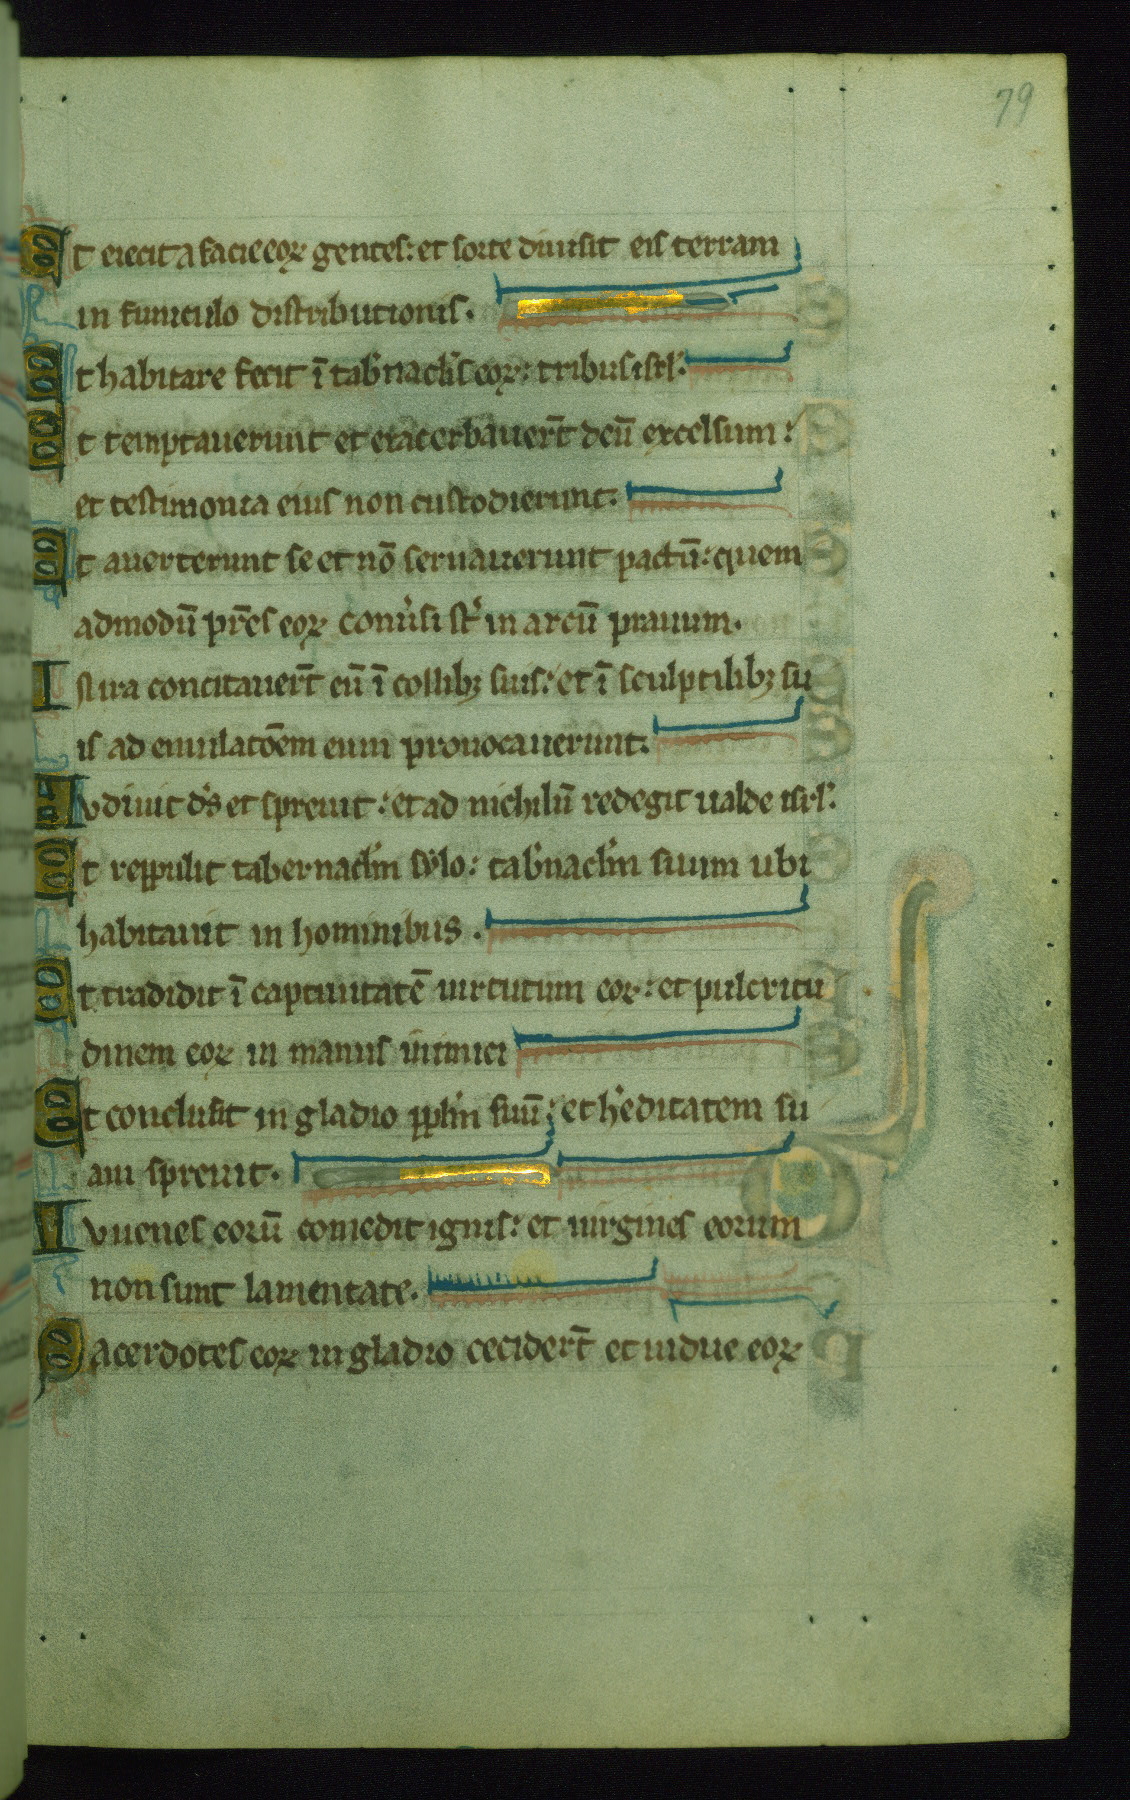 79
Et eiecit a facie eoꝝ gentes: et sorte diuisit eis terram
in funiculo distributionis.
Et habitare fecit ī tab'nacl'is eoꝝ: tribus isrl'.
Et temptauerunt et exacerbauer̄t deū excelsum:
et testimonia eius non custodierunt.
Et auerterunt se et nō seruauerunt pactū: quem
admodū pr̄es eoꝝ conu'si st' in arcū prauum.
In ira concitauer̄t eū ī collibꝫ suis: et ī sculptilibꝫ su
is ad emulatōem eum prouocauerunt.
Audiuit d's et spreuit: et ad nichilū redegit ualde isrl'.
Et reppulit tabernacl'm sylo: tab'nacl'm suum ubi
habitauit in hominibus.
Et tradidit ī captiuitatē uirtutum eoꝝ: et pulcritu
dinem eoꝝ in manus inimici
Et conclusit in gladio ppl'm suū: et h'editatem su
am spreuit.
Iuuenes eorū comedit ignis: et uirgines eorum
non sunt lamentate.
Sacerdotes eoꝝ in gladio cecider̄t et uidue eoꝝ